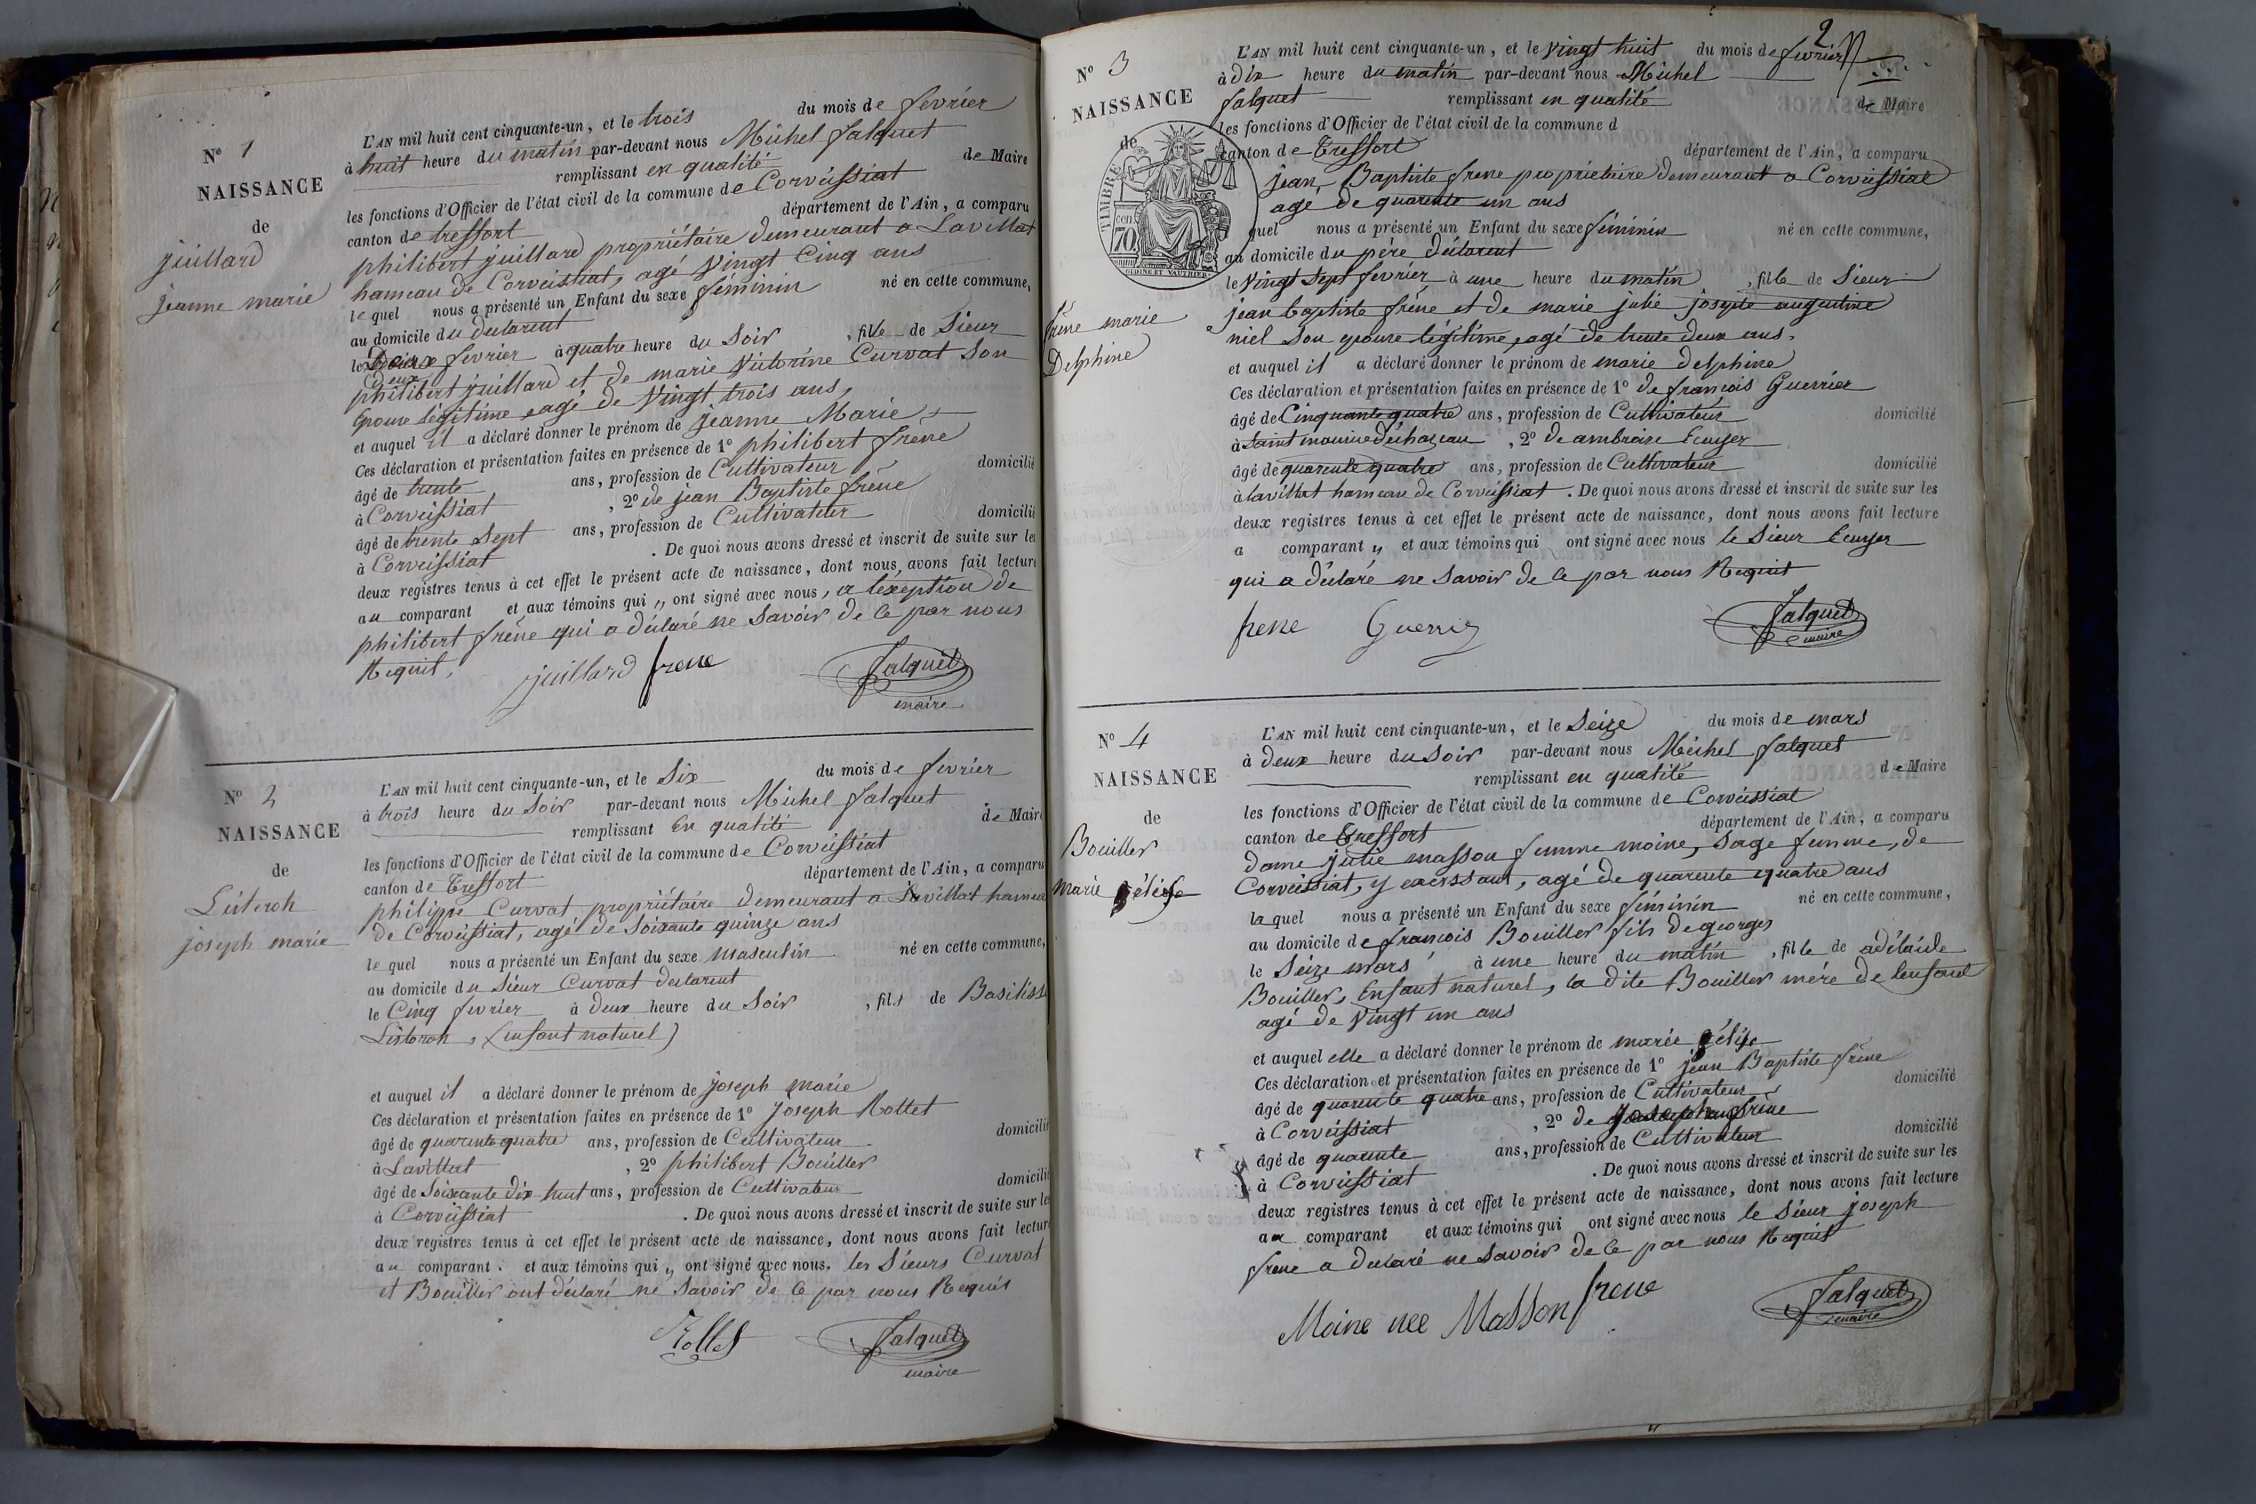 N° 1
NAISSANCE
de
juillard
jeanne marie
L'AN mil huit cent cinquante-un, et le trois du mois de fevrier
à huit heure du matin par-devant nous Michel falquet
remplissant en qualité de Maire
les fonctions d'Officier de l'état civil de la commune de Corveissiat
canton de treffort département de l'Ain, a comparu
philibert juillard propriétaire demeurant a Lavillat
hameau de Corveissiat, agé Vingt Cinq ans
le quel nous a présenté un Enfant du sexe féminin né en cette commune,
au domicile du déclarent
le deux fevrier à quatre heure du Soir, fille de Sieur
philibert juillard et de marie Victorine Curvat Son
épouse légitime, agé de Vingt trois ans,
et auquel il a déclaré donner le prénom de jeanne Marie
Ces déclaration et présentation faites en présence de 1° philibert frêne
âgé de trente ans, profession de Cultivateur domicilié
à Corveissiat, 2° de jean Baptiste frêne
âgé de trente Sept ans, profession de Cultivateur domicilié
à Corveissiat. De quoi nous avons dressé et inscrit de suite sur les
deux registres tenus à cet effet le présent acte de naissance, dont nous avons fait lecture
au comparant et aux témoins qui ,, ont signé avec nous, a léxeption de
philibert frêne qui a déclaré ne Savoir de Ce par nous
Requit,
juillard frene falquet
maire
N° 2
NAISSANCE
de
joseph marie
L'AN mil huit cent cinquante-un, et le Six du mois de fevrier
à trois heure du Soir par-devant nous Michel falquet
remplissant En qualité de Maire
les fonctions d'Officier de l'état civil de la commune de Corveissiat
canton de Treffort département de l'Ain, a comparu
philippe Curvat propriétaire demeurant a Lavillat hameau
de Corveissiat, agé de Soixante quinze ans
le quel nous a présenté un Enfant du sexe Masculin né en cette commune,
au domicile du Sieur Curvat declarent
le Cinq fevrier à deux heure du Soir, fils de Basilisse
(enfant naturel)
et auquel il a déclaré donner le prénom de joseph marie
Ces déclaration et présentation faites en présence de 1° joseph Rollet
âgé de quarente quatre ans, profession de Cultivateur domicilié
à Lavillat, 2° philibert Bouiller
âgé de Soixante dix huit ans, profession de Cultivateur domicilié
à Corveissiat. De quoi nous avons dressé et inscrit de suite sur les
deux registres tenus à cet effet le présent acte de naissance, dont nous avons fait lecture
au comparant. et aux témoins qui ,, ont signé avec nous. les Sieurs Curvat
et Bouiller ont déclaré ne Savoir de Ce par nous Requis
Rollet falquet
maire
2
N° 3
NAISSANCE
de
TIMBRE
70
frêne marie
Delphine
L'AN mil huit cent cinquante-un, et le Vingt huit du mois de fevrier
à dix heure du matin par-devant nous Michel
falquet remplissant en qualité de Maire
les fonctions d'Officier de l'état civil de la commune d
canton de Treffort département de l'Ain, a comparu
jean, Baptiste frene propriétaire demeurant a Corveissiat
age de quarente un ans
quel nous a présenté un Enfant du sexe féminin né en cette commune,
au domicile du père déclarent
le Vingt Sept fevrier à une heure du matin, fille de Sieur
jean baptiste frêne et de marie julie josepte augustine
niel Son épouse légitime, agé de trente deux ans,
et auquel il a déclaré donner le prénom de marie delphine
Ces déclaration et présentation faites en présence de 1° de françois Guerrier
âgé de Cinquante quatre ans, profession de Cultivateur domicilié
à Saint maurice déchazeau, 2° de ambroise Ecuyer
âgé de quarente quatre ans, profession de Cultivateur domicilié
à lavillat hameau de Corveissiat. De quoi nous avons dressé et inscrit de suite sur les
deux registres tenus à cet effet le présent acte de naissance, dont nous avons fait lecture
a comparant ,, et aux témoins qui ont signé avec nous le Sieur Ecuyer
qui a déclaré ne Savoir de Ce par nous Requit
frene Guerrier falquet
maire
N° 4
NAISSANCE
de
Bouiller
marie
L'AN mil huit cent cinquante-un, et le Seize du mois de mars
à deux heure du Soir par-devant nous Michel falquet
remplissant en qualité de Maire
les fonctions d'Officier de l'état civil de la commune de Corveissiat
canton de Treffort département de l'Ain, a comparu
dame julie masson femme moine, Sage femme, de
Corveissiat, y exerssant, agé de quarente quatre ans
la quel nous a présenté un Enfant du sexe féminin né en cette commune,
au domicile de francois Bouiller fils de georges
le Seize mars à une heure du matin, fille de adélaide
Bouiller, Enfant naturel, la dite Bouiller mére de lenfant
agé de Vingt un ans
et auquel elle a déclaré donner le prénom de marie
Ces déclaration et présentation faites en présence de 1° jean Baptiste frêne
âgé de quarente quatre ans, profession de Cultivateur domicilié
à Corveissiat, 2° de joseph frêne
âgé de quarente ans, profession de Cultivateur domicilié
à Corveissiat. De quoi nous avons dressé et inscrit de suite sur les
deux registres tenus à cet effet le présent acte de naissance, dont nous avons fait lecture
au comparant et aux témoins qui ont signé avec nous le Sieur joseph
frene a declaré ne Savoir de Ce par nous Requit
Moine nee Masson frene falquet
maire